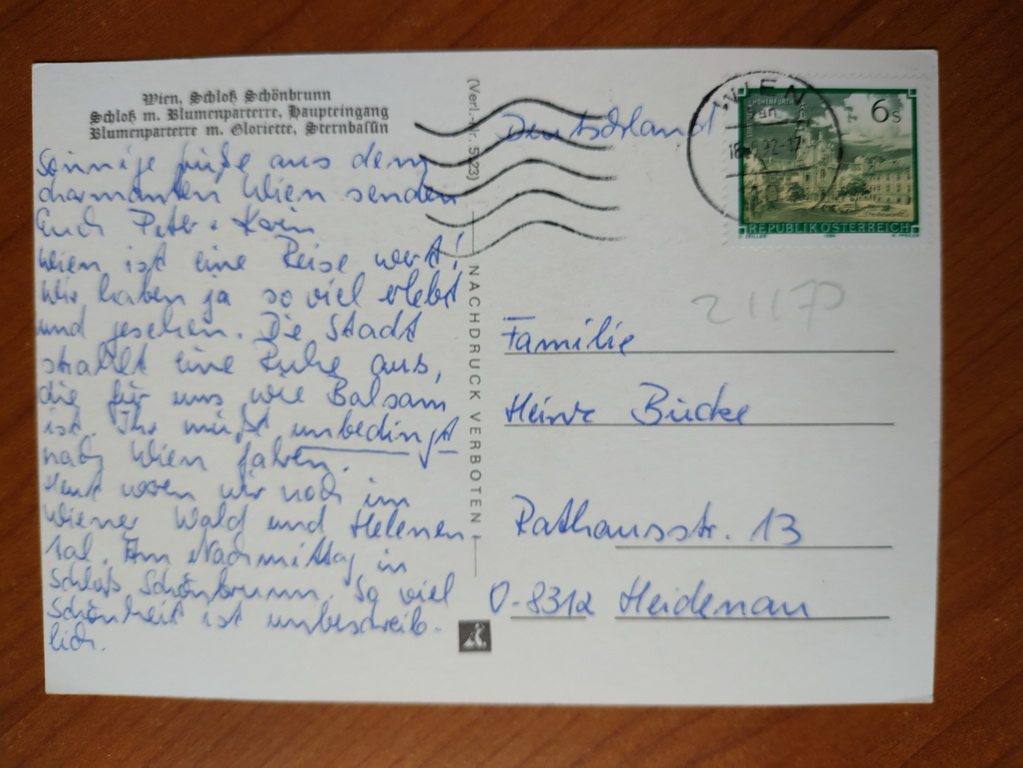 Wien, Schloß Schönbrunn
Schloß m. Blumenparterre, Haupteingang
Blumenparterre m. Gloriette, Sternbassin
Sonnige Grüße aus dem
charmanten Wien senden
Euch Peter + Karin
Wien ist eine Reise wert!
Wir haben ja so viel erlebt
und gesehen. Die Stadt
strahlt eine Ruhe aus,
die für uns wie Balsam
ist. Ihr müßt unbedingt
nach Wien fahren.
Heut waren wir noch im
Wiener Wald und Helenen
tal. Am Nachmittag in
Schloß Schönbrunn. So viel
Schönheit ist unbeschreib-
lich.
(Verl.-Nr. 523)
NACHDRUCK VERBOTEN
Deutschland
WIEN
6s
REPUBLIK ÖSTERREICH
21170
Familie
Bücke
Rathausstr. 13
O-8312 Heidenau